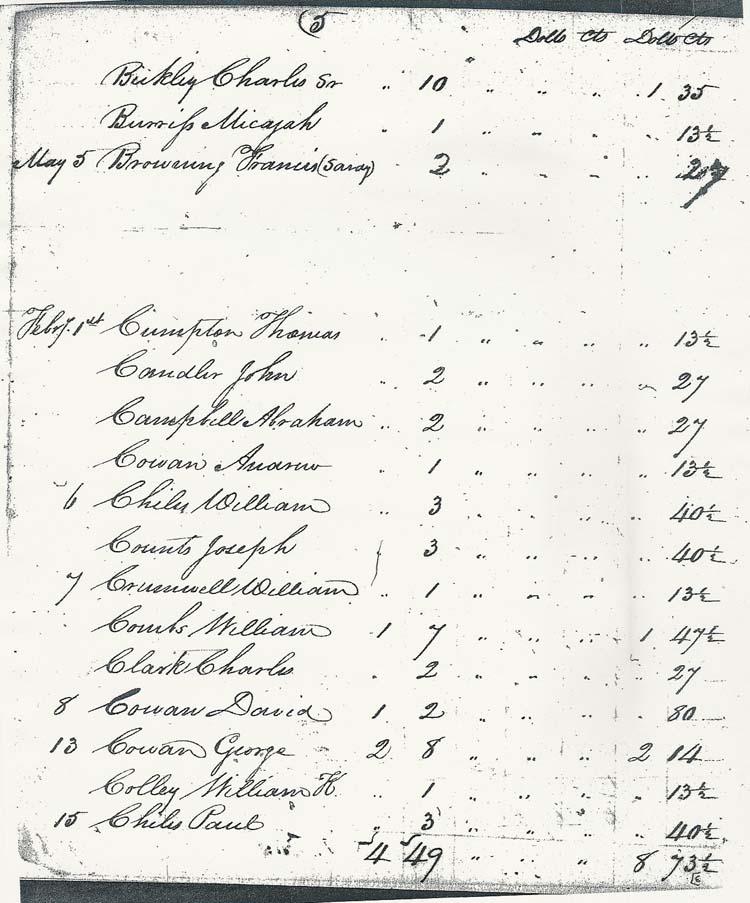 (5
Dolls Cts Dolls Cts
Bickley Charles Sr " 10 " " " 1 35
Burriss Micajah " 1 " " " " 13½
May 5 Browning Francis (Sandy) " 2 " " " "
Febry. 1st Cumpton Thomas " 1 " " " " 13½
Candler John " 2 " " " " 27
Campbell Abraham " 2 " " " " 27
Cowan Andrew " 1 " " " " 13½
6 Chiles William " 3 " " " " 40½
Counts Joseph 3 " " " " 40½
7 Crumwell William " 1 " " " " 13½
Combs William 1 7 " " " 1 47½
Clark Charles " 2 " " " " 27
8 Cowan David 1 2 " " " " 80
13 Cowan George 2 8 " " " 2 14
Colley William H. " 1 " " " " 13½
15 Chiles Paul " 3 " " " " 40½
4 49 " " " 8 73½